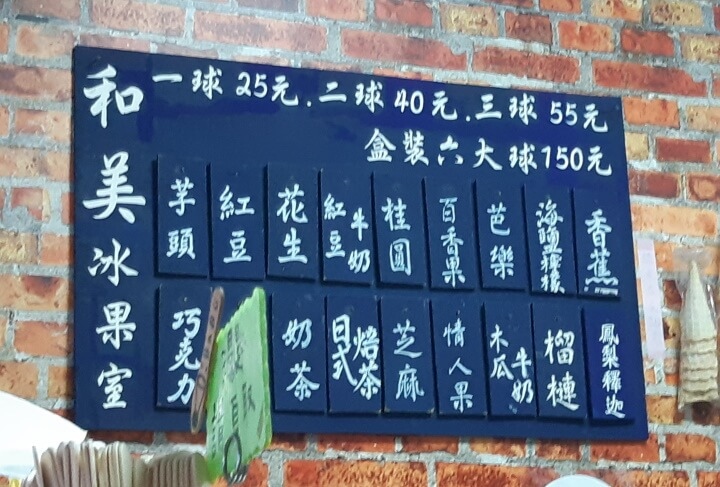 和美冰果室
一球25元.二球40元.三球55元
盒裝六大球150元
芋頭
紅豆
花生
紅豆牛奶
桂圓
百香果
芭樂
海鹽檸檬
香蕉
巧克力
奶茶
日式焙茶
芝麻
情人果
木瓜牛奶
榴槤
鳳梨釋迦